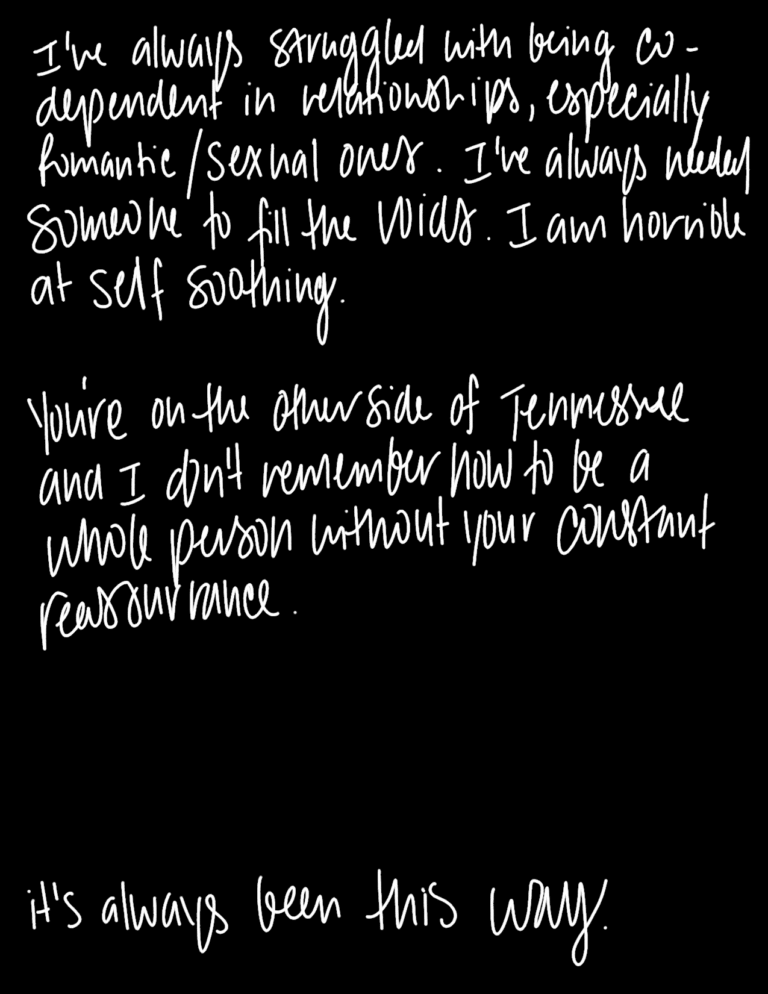 I've always struggled with being co-
dependent in relationships, especially
romantic/sexual ones. I've always needed
someone to fill the voids. I am horrible
at self soothing.
You're on the other side of Tennessee
and I don't remember how to be a
whole person without your constant
reassurrance.
it's always been this way.